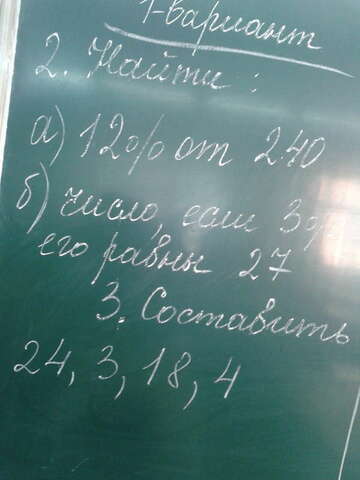 1-вариант
2. Найти :
а) 12% от 240
б) число, если 3%
его равны 27
3. Составить
24, 3, 18, 4